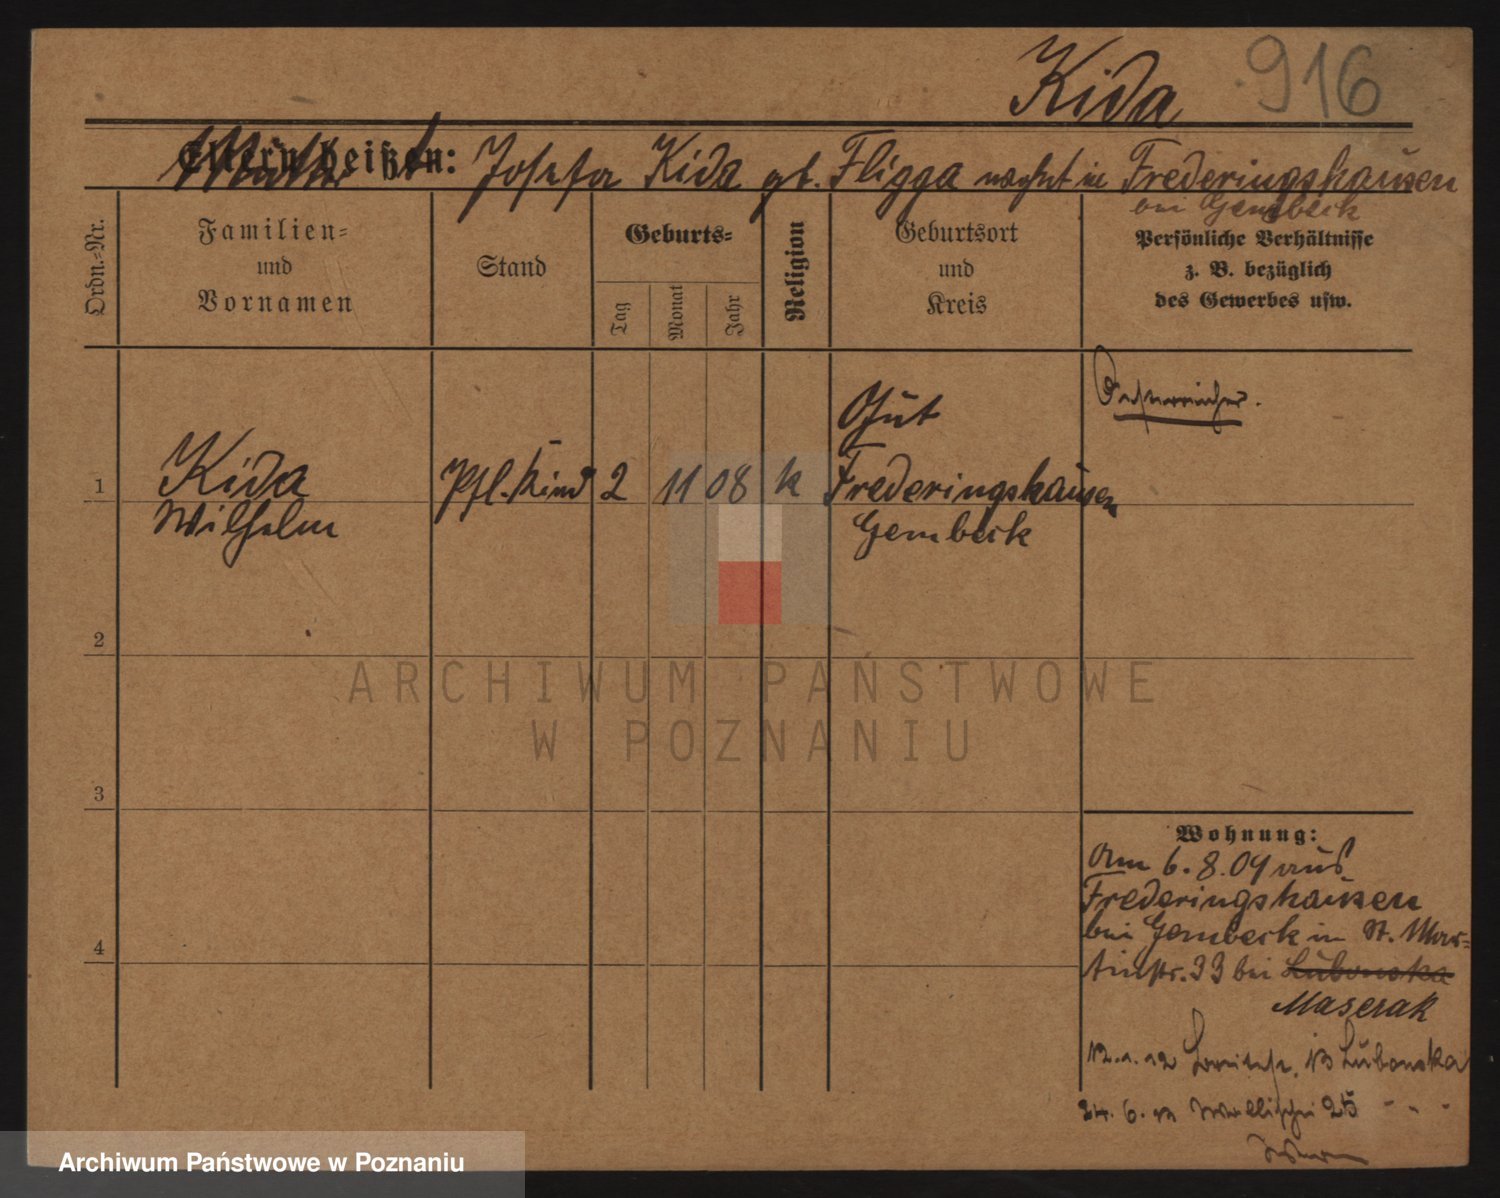 Kida 916
Eltern heißen: Josefa Kida gb. Fligga wohnt in Frederingshausen
bei Gembeck
Ordn.-Nr.
Familien-
und
Vornamen
Stand
Geburts-
Tag
Monat
Jahr
Religion
Geburtsort
und
Kreis
Persönliche Verhältnisse
z. B. bezüglich
des Gewerbes usw.
Oesterreicher.
Gut
1 Kida Pfl. Kind 2 11 08 k Frederingshausen
Wilhelm Gembeck
2
3
4
Wohnung:
Am 6.8.09 aus
Frederingshausen
bei Gembeck in St. Mar-
tinstr. 33 bei Lubonska
Maserak
12.1.12 13 Lubonska
24. 6. Wallischei 25 " " "
ARCHIWUM PAŃSTWOWE
W POZNANIU
Archiwum Państwowe w Poznaniu